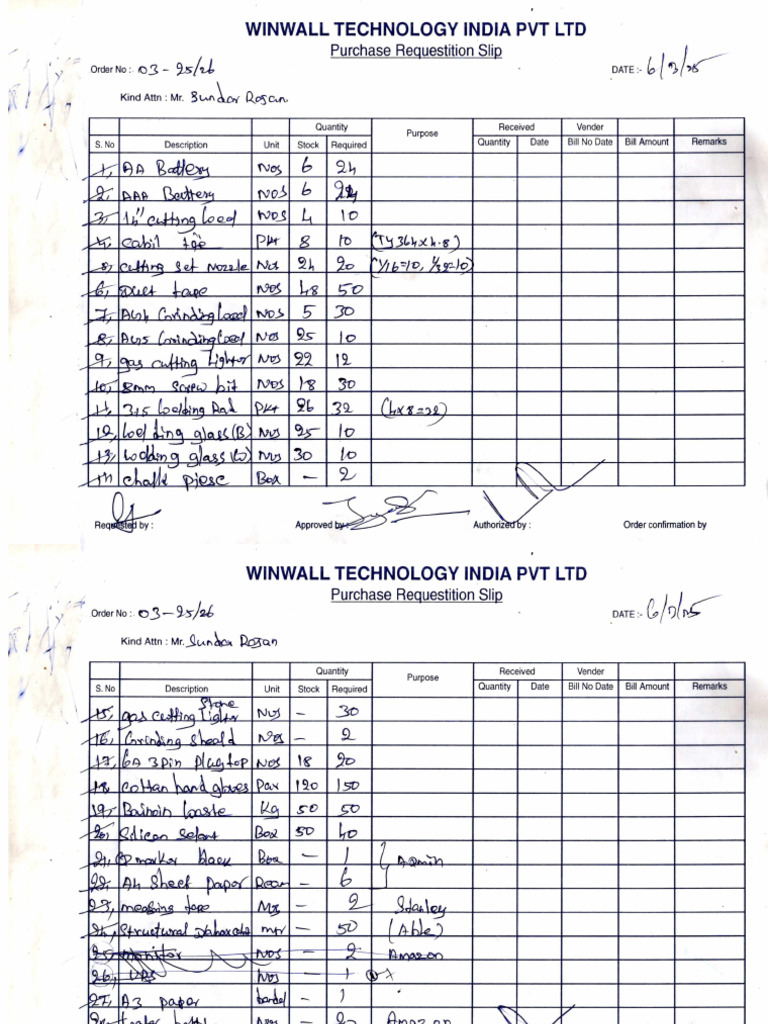 WINWALL TECHNOLOGY INDIA PVT LTD
Purchase Requestition Slip
Order No :- 03-25/26 DATE :- 6/3/25
Kind Attn : Mr. Sundar Rosan
Quantity Purpose Received Vender
S. No Description Unit Stock Required Quantity Date Bill No Date Bill Amount Remarks
1, AA Battery Nos 6 24
2, AAA Battery NOS 6 24
3, 14" cutting Nos 4 10
4, Cabil tie Pkt 8 10 (TY 364x4.8)
5, cutting set Nozzle Nos 24 20 (1/16=10, 1/32=10)
6, Duct tape Nos 48 50
7, Grinding Nos 5 30
8, Grinding Nos 25 10
9, gas cutting Lightor Nos 22 12
10, 8mm screw bit Nos 18 30
11, 3.15 welding Rad Pkt 26 32 (4x8=32)
12, welding glass (B) Nos 25 10
13, welding glass (W) Nos 30 10
14, chalk piese Box - 2
Requested by : Approved by : Authorized by : Order confirmation by
WINWALL TECHNOLOGY INDIA PVT LTD
Purchase Requestition Slip
Order No :- 03-25/26 DATE :-
Kind Attn : Mr. Sundar Rosan
Quantity Purpose Received Vender
S. No Description Unit Stock Required Quantity Date Bill No Date Bill Amount Remarks
15, gas cutting lightor Stone Nos - 30
16, Grinding sheald Nos - 2
17, 6A 3pin plugtop Nos 18 20
18, cottan hand gloves Par 120 150
19, Kg 50 50
20, Silicon Box 50 40
21, marker black Box - 1 Admin
22, A4 Sheet paper - 6
23, measing tape - 2 Stanley
24, Structural mtr - 50 (Able)
25, monitor NOS - 2 Amazon
26, UPS Nos - 1
27, A3 paper - 1
Amazon